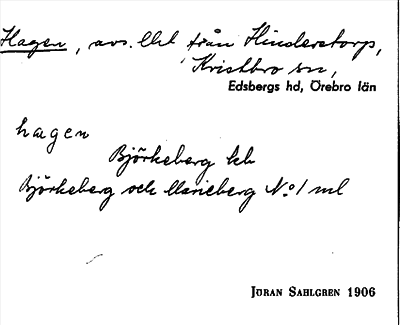 Hagen, avs. lht från Hinderstorp,
Kristbro sn,
Edsbergs hd, Örebro län
hagen
Björkeberg lzh
Björkeberg och Marieberg No 1 ml
JÖRAN SAHLGREN 1906